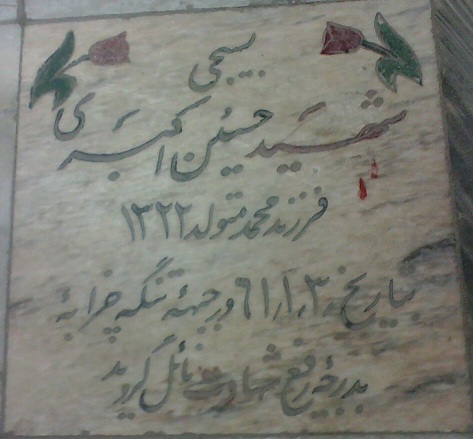 بسیجی
شهید حسین اکبری
فرزند محمد متولد ۱۳۲۲
بتاریخ ۶۱٫۱٫۳ در جبهه تنگه چزابه
بدرجه رفیع شهادت نائل گردید